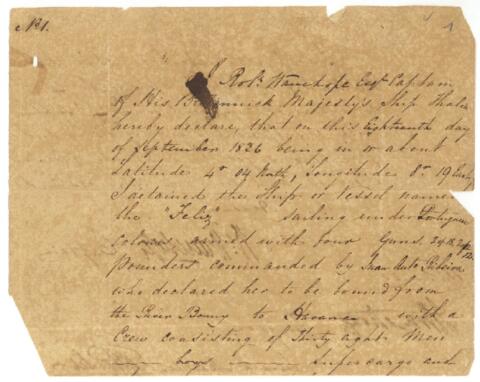 No 1.
1
I Robt Wauchope Esqr Captain
of His Britannick Majesty's Ship Thalia
hereby declare, that on this Eighteenth day
of September 1826 being in or about
Latitude 4° 04 North, Longitude 8° 19 East,
I detained the Ship or Vessel named
the "Feliz" sailing under Portuguese
colours armed with four Guns, 24 18,
pounders commanded by
who declared her to be bound from
the River Bonny to Havana with a
Crew consisting of Thirty eight Men
boys Supercargo and